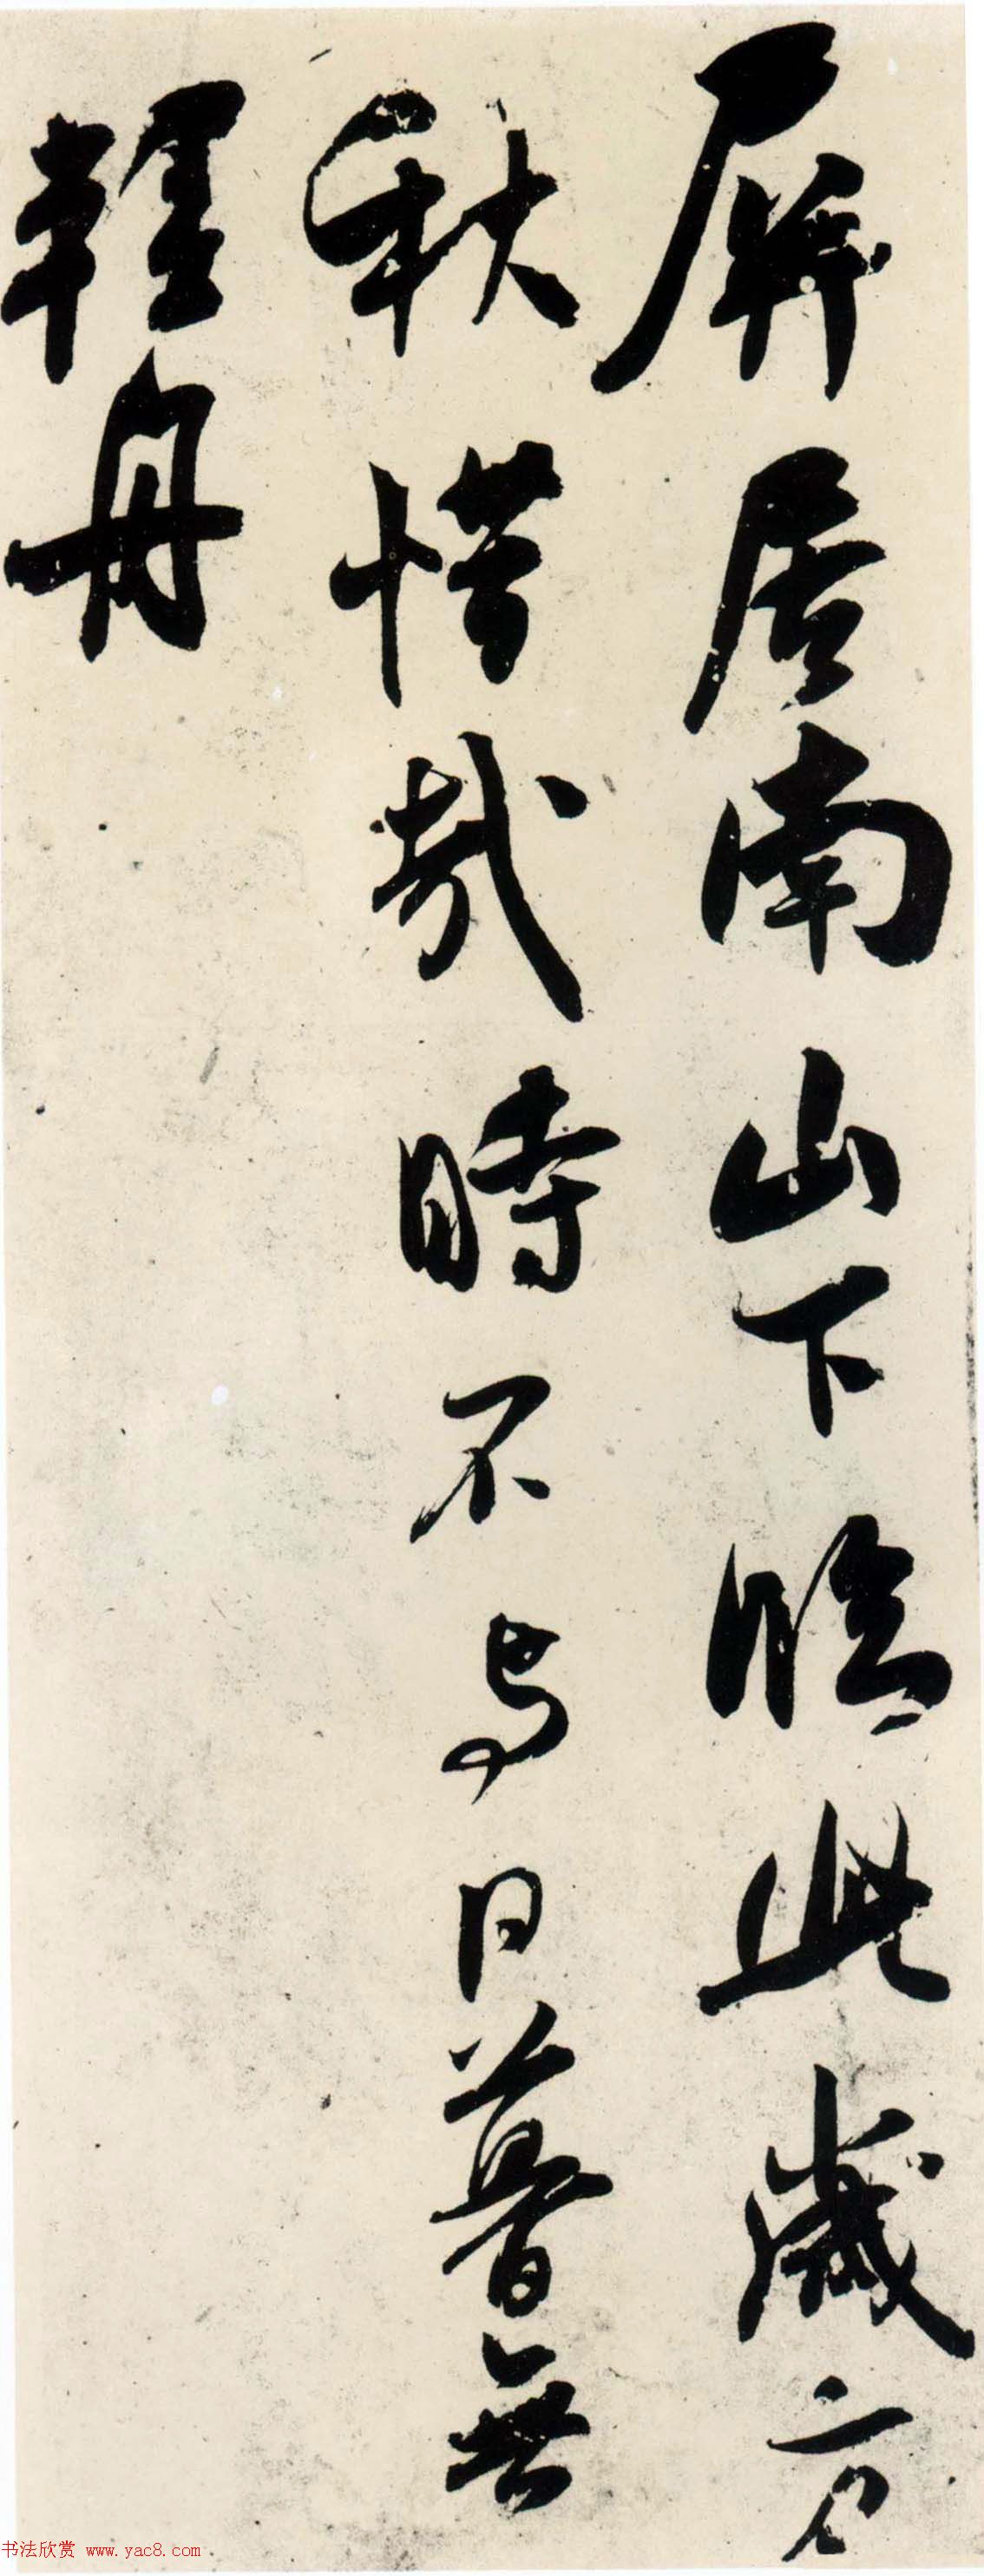 屏居南山下臨此歲方
秋惜哉時不與日暮無
輕舟
书法欣赏 www.yac8.com